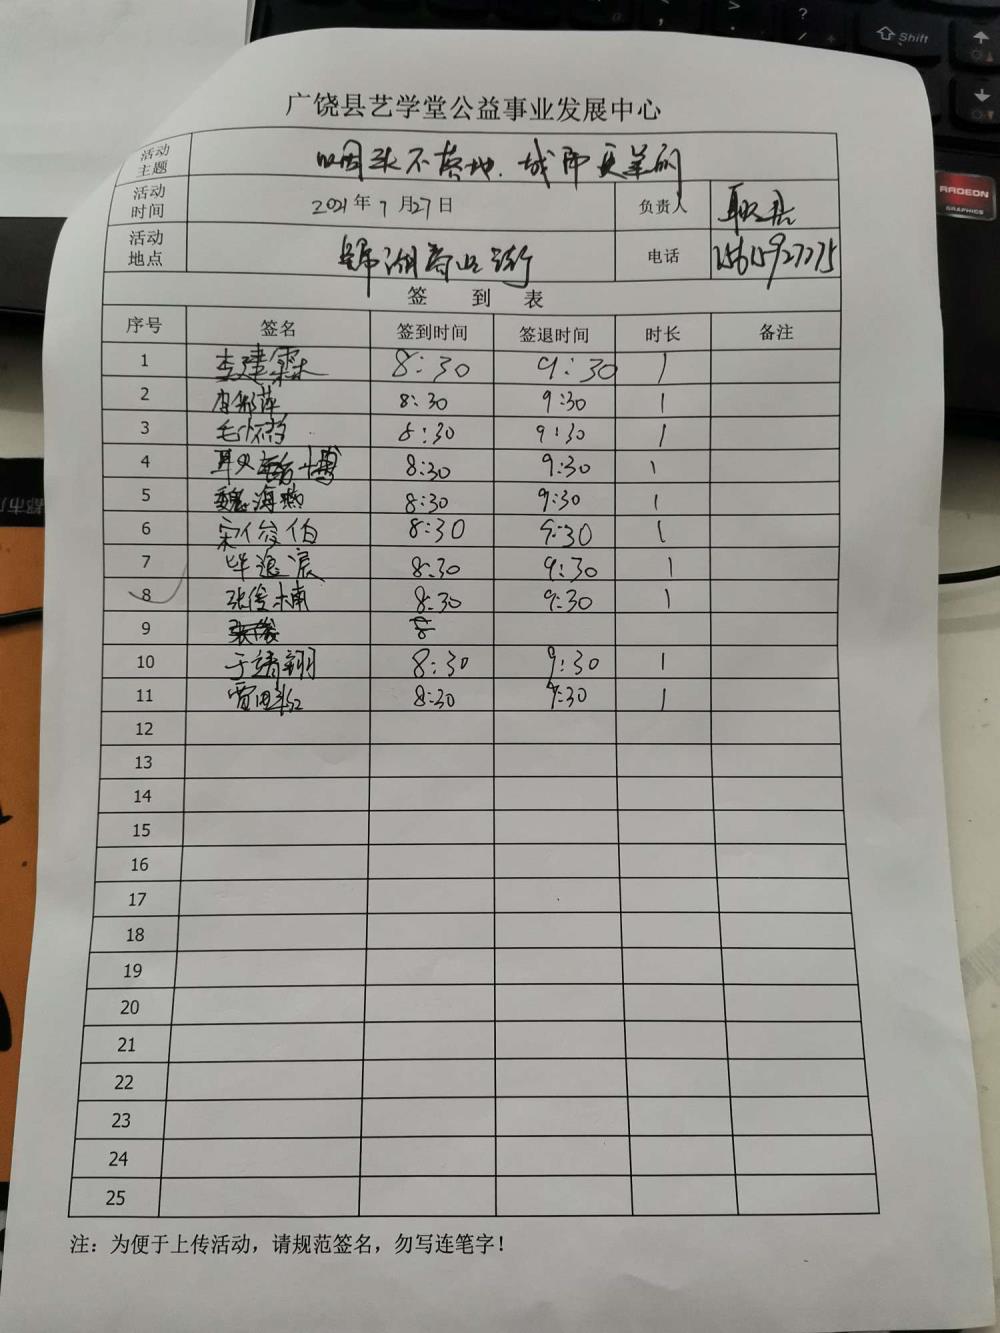 Shift
RADEON
GRAPHICS
广饶县艺学堂公益事业发展中心
活动主题 烟头不落地.城市更美丽
活动时间 2021年7月27日 负责人
活动地点 湖商业街 电话 15615927775
签到表
序号 签名 签到时间 签退时间 时长 备注
1 李建霖 8:30 9:30 1
2 8:30 9:30 1
3 8:30 9:30 1
4 8:30 9:30 1
5 魏海燕 8:30 9:30 1
6 宋俊伯 8:30 9:30 1
7 毕浪宸 8:30 9:30 1
8 张俊楠 8:30 9:30 1
9 张俊 8
10 于靖翔 8:30 9:30 1
11 8:30 9:30 1
12
13
14
15
16
17
18
19
20
21
22
23
24
25
注：为便于上传活动，请规范签名，勿写连笔字！